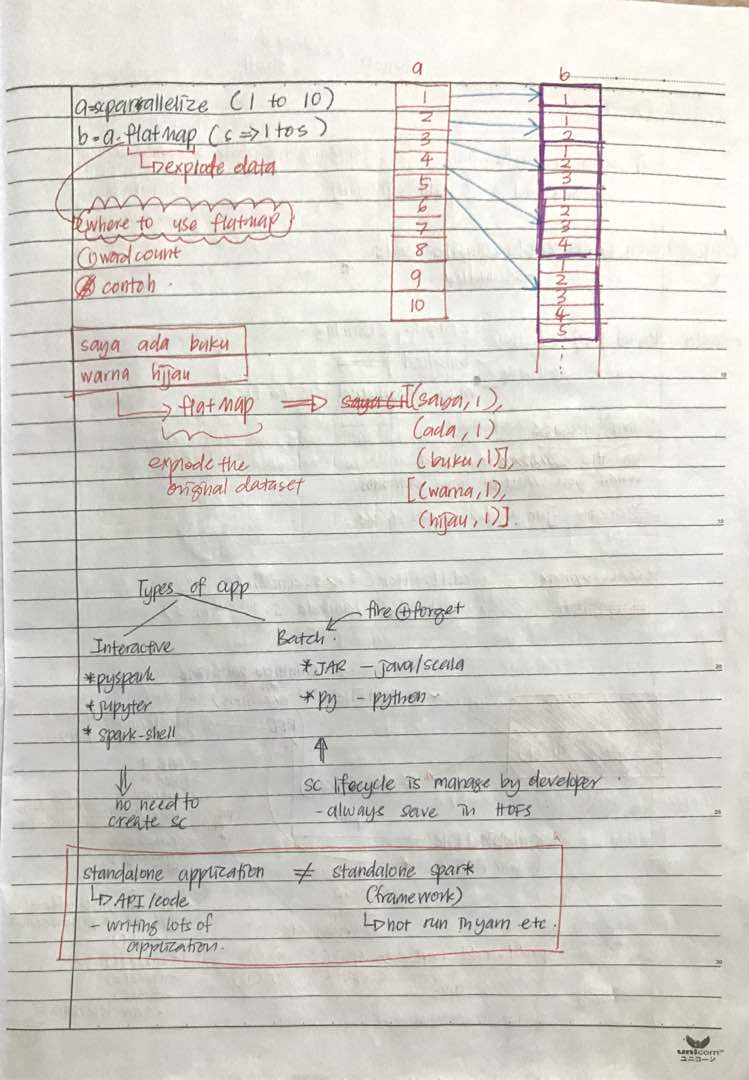 a=sc.parallelize (1 to 10)
b=a.flatmap (s => 1 to s)
↳ explode data
where to use flatmap
① wordcount
② contoh.
a
1
2
3
4
5
6
7
8
9
10
b
1
1
2
1
2
3
1
2
3
4
1
2
3
4
5
saya ada buku
warna hijau
→ flatmap ⇒ [(saya, 1),
(ada, 1)
(buku, 1)],
[(warna, 1),
(hijau, 1)].
explode the
original dataset
Types of app
Interactive
* pyspark
* jupyter
* spark-shell
no need to
create sc
fire ⊕ forget
Batch.
* JAR - java/scala
* py - python
sc lifecycle is manage by developer.
- always save in HDFS
standalone application ≠ standalone spark
↳ API/code (framework)
- writing lots of ↳ not run in yarn etc.
application.
unicorn
ユニコーン